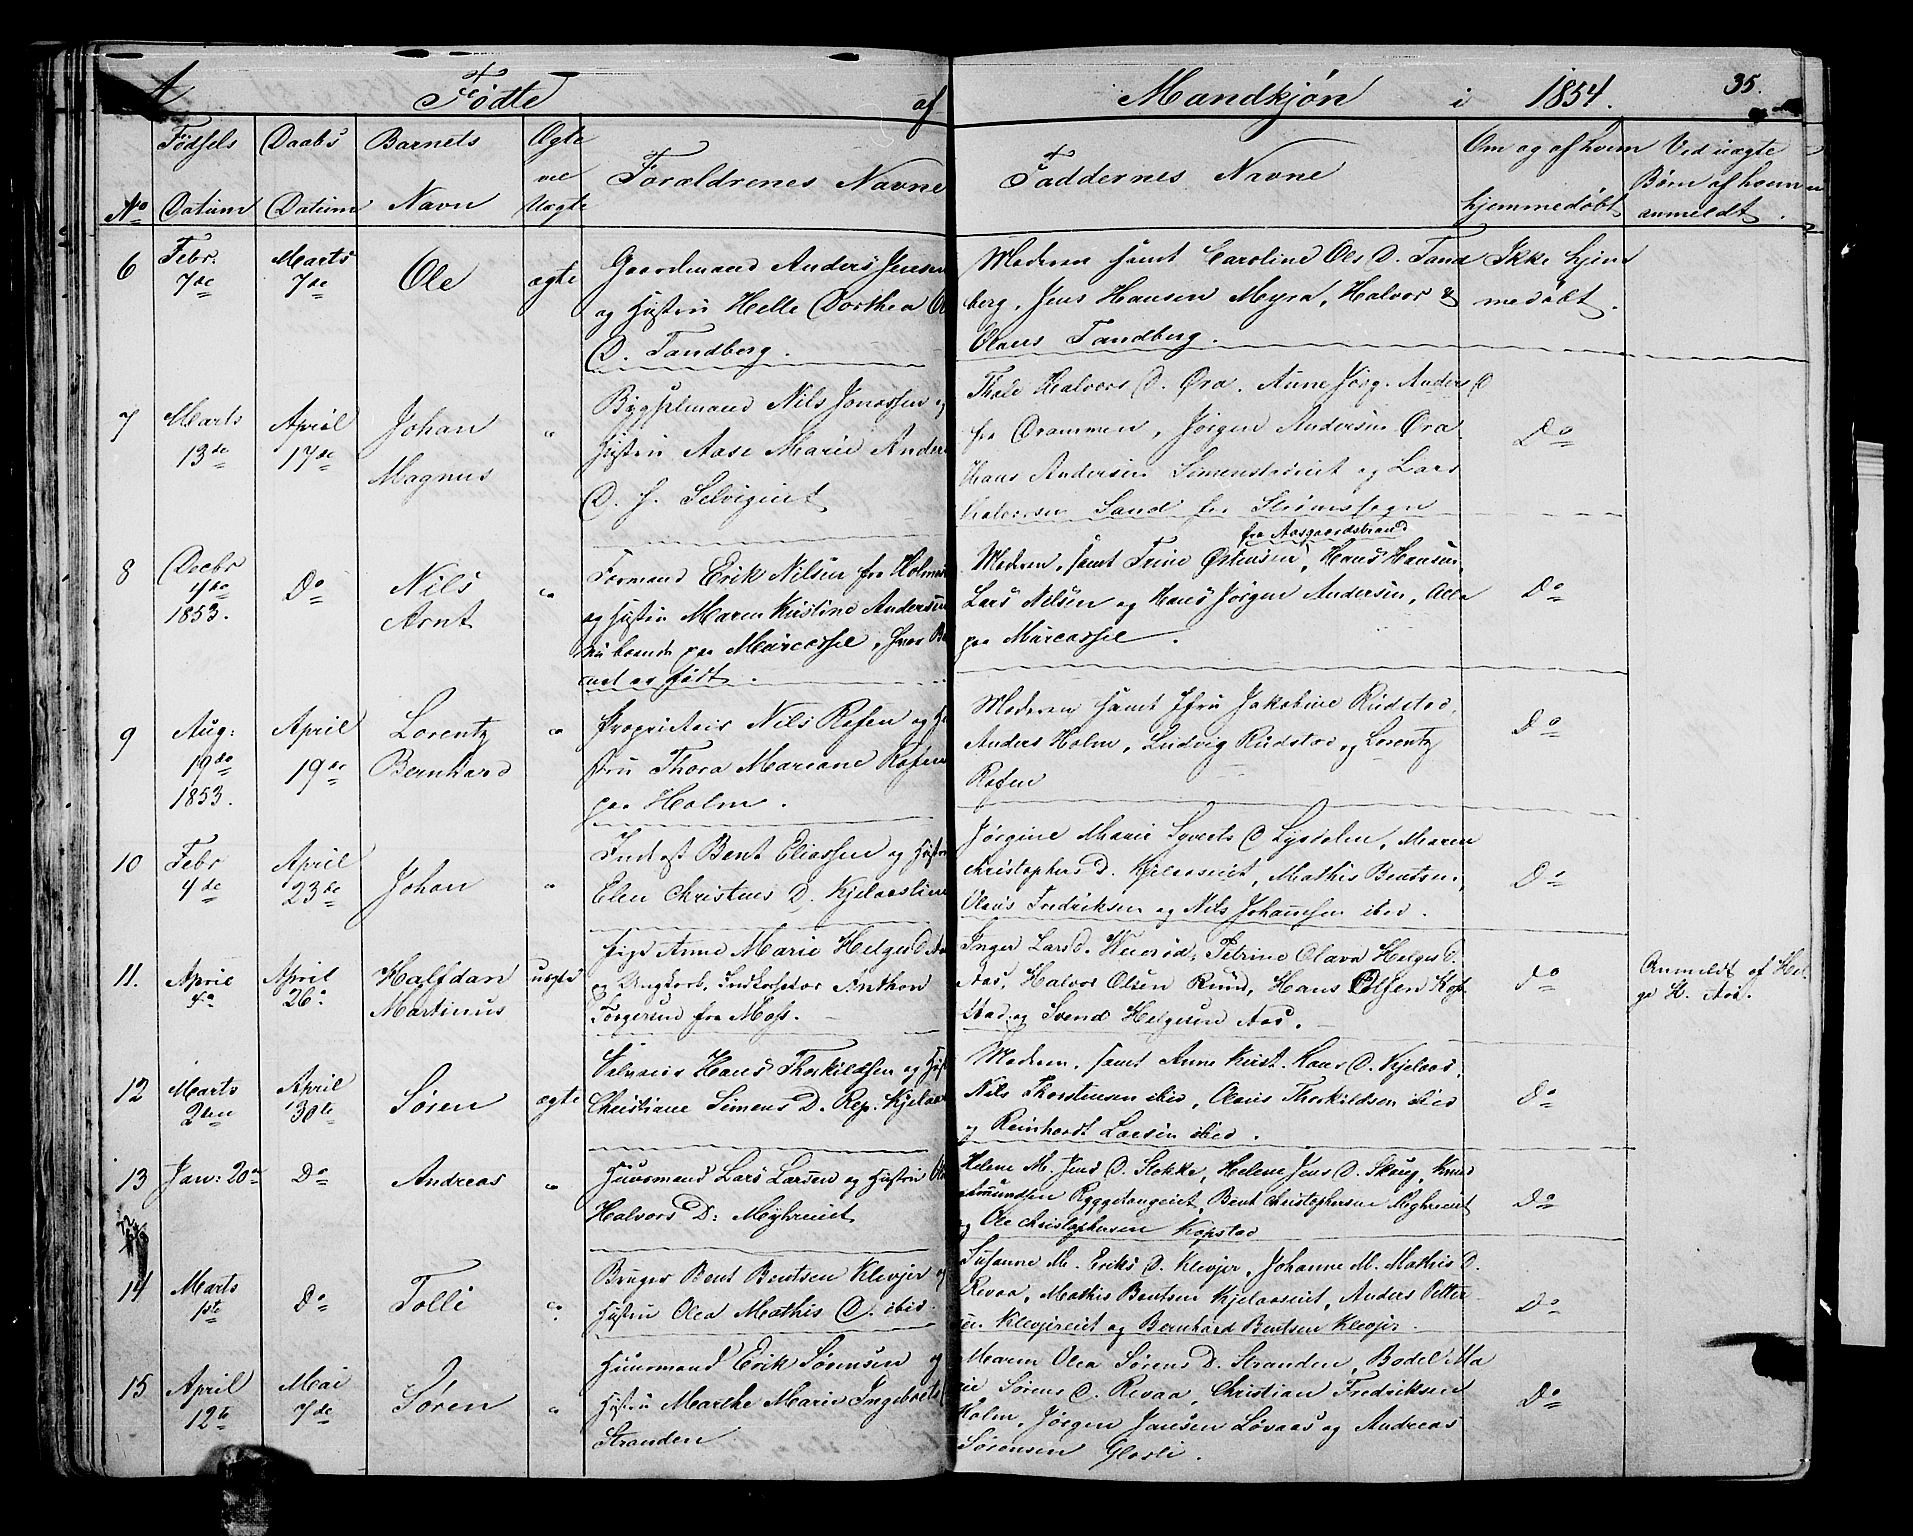 Fødte af Mandkjøn i 1854. 35.
No
Fødsels Datum
Daabs Datum
Barnets Navn
Ægte ell Uægte
Forældrenes Navne
Faddernes Navne
Om og af hvem hjemmedøbt
Ved uægte Børn af hvem anmeldt.
6 Febr. 7de Marts 7de Ole ægte
Gaardmand Anders Jensen
og Hustru Helle Dorthea
D. Tandberg.
Moderen samt Caroline Ols D. Tand
berg, Jens Hansen Myra, Halvor &
Olaus Tandberg.
Ikke hjem
medøbt.
7 Marts 13de April 17de Johan Magnus "
Bygselmand Nils Jonassen
Hustru Aase Marie Ander
D. f. Selvigeiet
Thale Halvors D. Øra, Anne Jørg. Anders D
fra Drammen, Jørgen Andersen Øra
Hans Andersen Simenstadeiet og Lars
Halvorsen Sand fra Strømssogn
Do
8 Decbr 4de 1853. Do Nils Arnt "
Formand Erik Nilsen fra Holme
og Hustru Maren Kirstine Andersen
nu boende paa Marcussie, hvor
net er født.
fra Aasgaardstrand
Moderen, samt Trine Østensen, Hans Hansen,
Lars Nilsen og Hans Jørgen Andersen, Alle
paa Marcussie.
Do
9 Aug: 19de 1853. April 19de Lorentz Bernhard "
Proprietair Nils Rafen og
stru Thora Mariane Rafen
paa Holm.
Moderen samt Jfru Jakobine Rudstad,
Anders Holm, Ludvig Rudstad og Lorentz
Rafen
Do
10 Febr 4de April 23de Johan "
Inderst Bent Eliassen og Hust
Elen Christens D. Kjelaaslien
Jørgine Marie Syverts D Lysdalen, Maren
Christophers D. Kjelaaseiet, Mathis Bentsen,
Olaus Fredriksen og Nils Johansen ibid.
Do
11. April 4de April 26de Halfdan Martinus uægte
Pige Anne Marie Helges D.
og Ungkarl, Anthon
Torgersen fra Moss.
Inger Lars D. Petrine Olava Helges D.
Aas, Halvor Olsen Hans Olsen Kop
stad og Svend Helgesen Aas.
Do
Anmeldt af Hel
ge H. Aas.
12 Marts 2den April 30te Søren ægte
Selveier Hans Thorkildsen og Hust
Christiane Simens D. Rep. Kjelaas
Moderen, samt Anne Kirst. Hans D. Kjelaas,
Nils Thorstensen ibid, Olaus Thorkildsen ibid
og Reinhardt Larsen ibid.
Do
13 Jan: 20de Do Andreas "
Huusmand Lars Larsen og Hustru
Halvors D: Myhreeiet
Helene M. Jens D. Slokke, Helene Jens D. Skoug, Knud
Bent Christophersen Myhreeiet
og Ole Christophersen Kopstad
Do
14 Marts 1ste Do Tolli "
Bruger Bent Bentsen Klevjer og
Hustru Olea Mathis D. ibid.
Susanne M. Eriks D. Klevjer, Johanne M. Mathis D.
Revaa, Mathis Bentsen Kjelaaseiet, Anders Petter
sen Klevjereiet og Bernhard Bentsen Klevjer.
Do
15 April 12te Mai 7de Søren "
Huusmand Erik Sørensen og
Hustru Marthe Marie Ingebrets
Stranden
Maren Olea Sørens D. Stranden, Bodel Ma
rie Sørens D. Revaa, Christian Fredriksen
Holm, Jørgen Jansen Løvaas og Andreas
Sørensen
Do